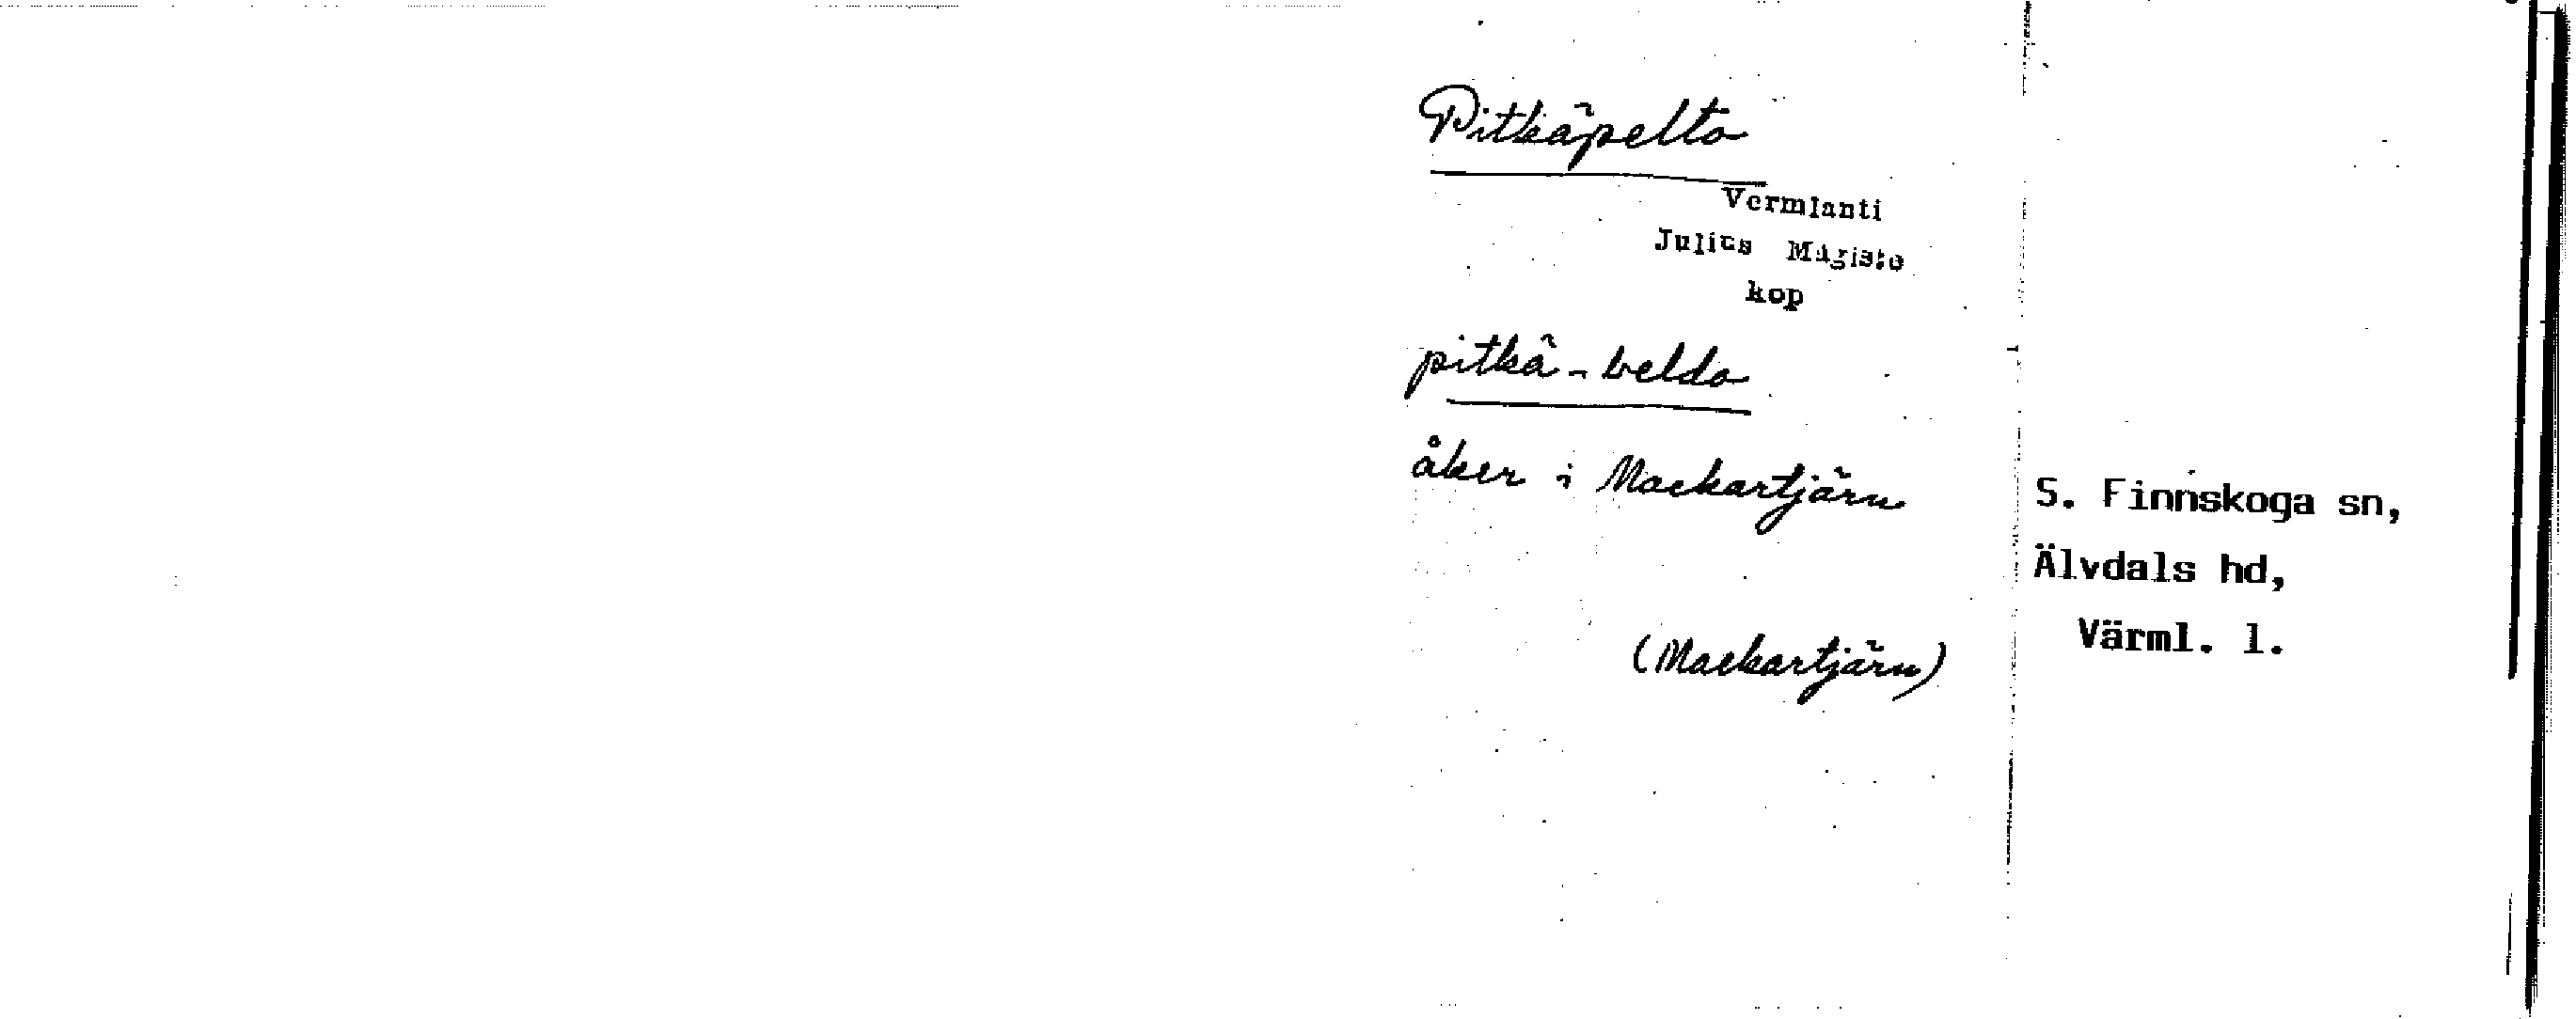 Pitkäpelto
Vermlanti
Julius Mägiste
kop
pitkä-beldo
åker i Mackartjärn
S. Finnskoga sn,
Älvdals hd,
Värml. l.
(Mackartjärn)